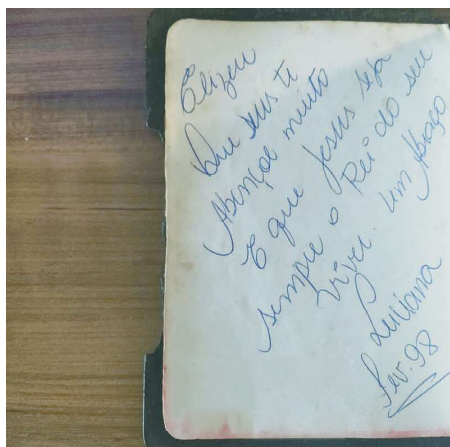 Elizeu
Que Deus ti
Abençoe muito
E que Jesus seja
sempre o Rei do seu
viver. Um Abraço
Luciana
Fev. 98